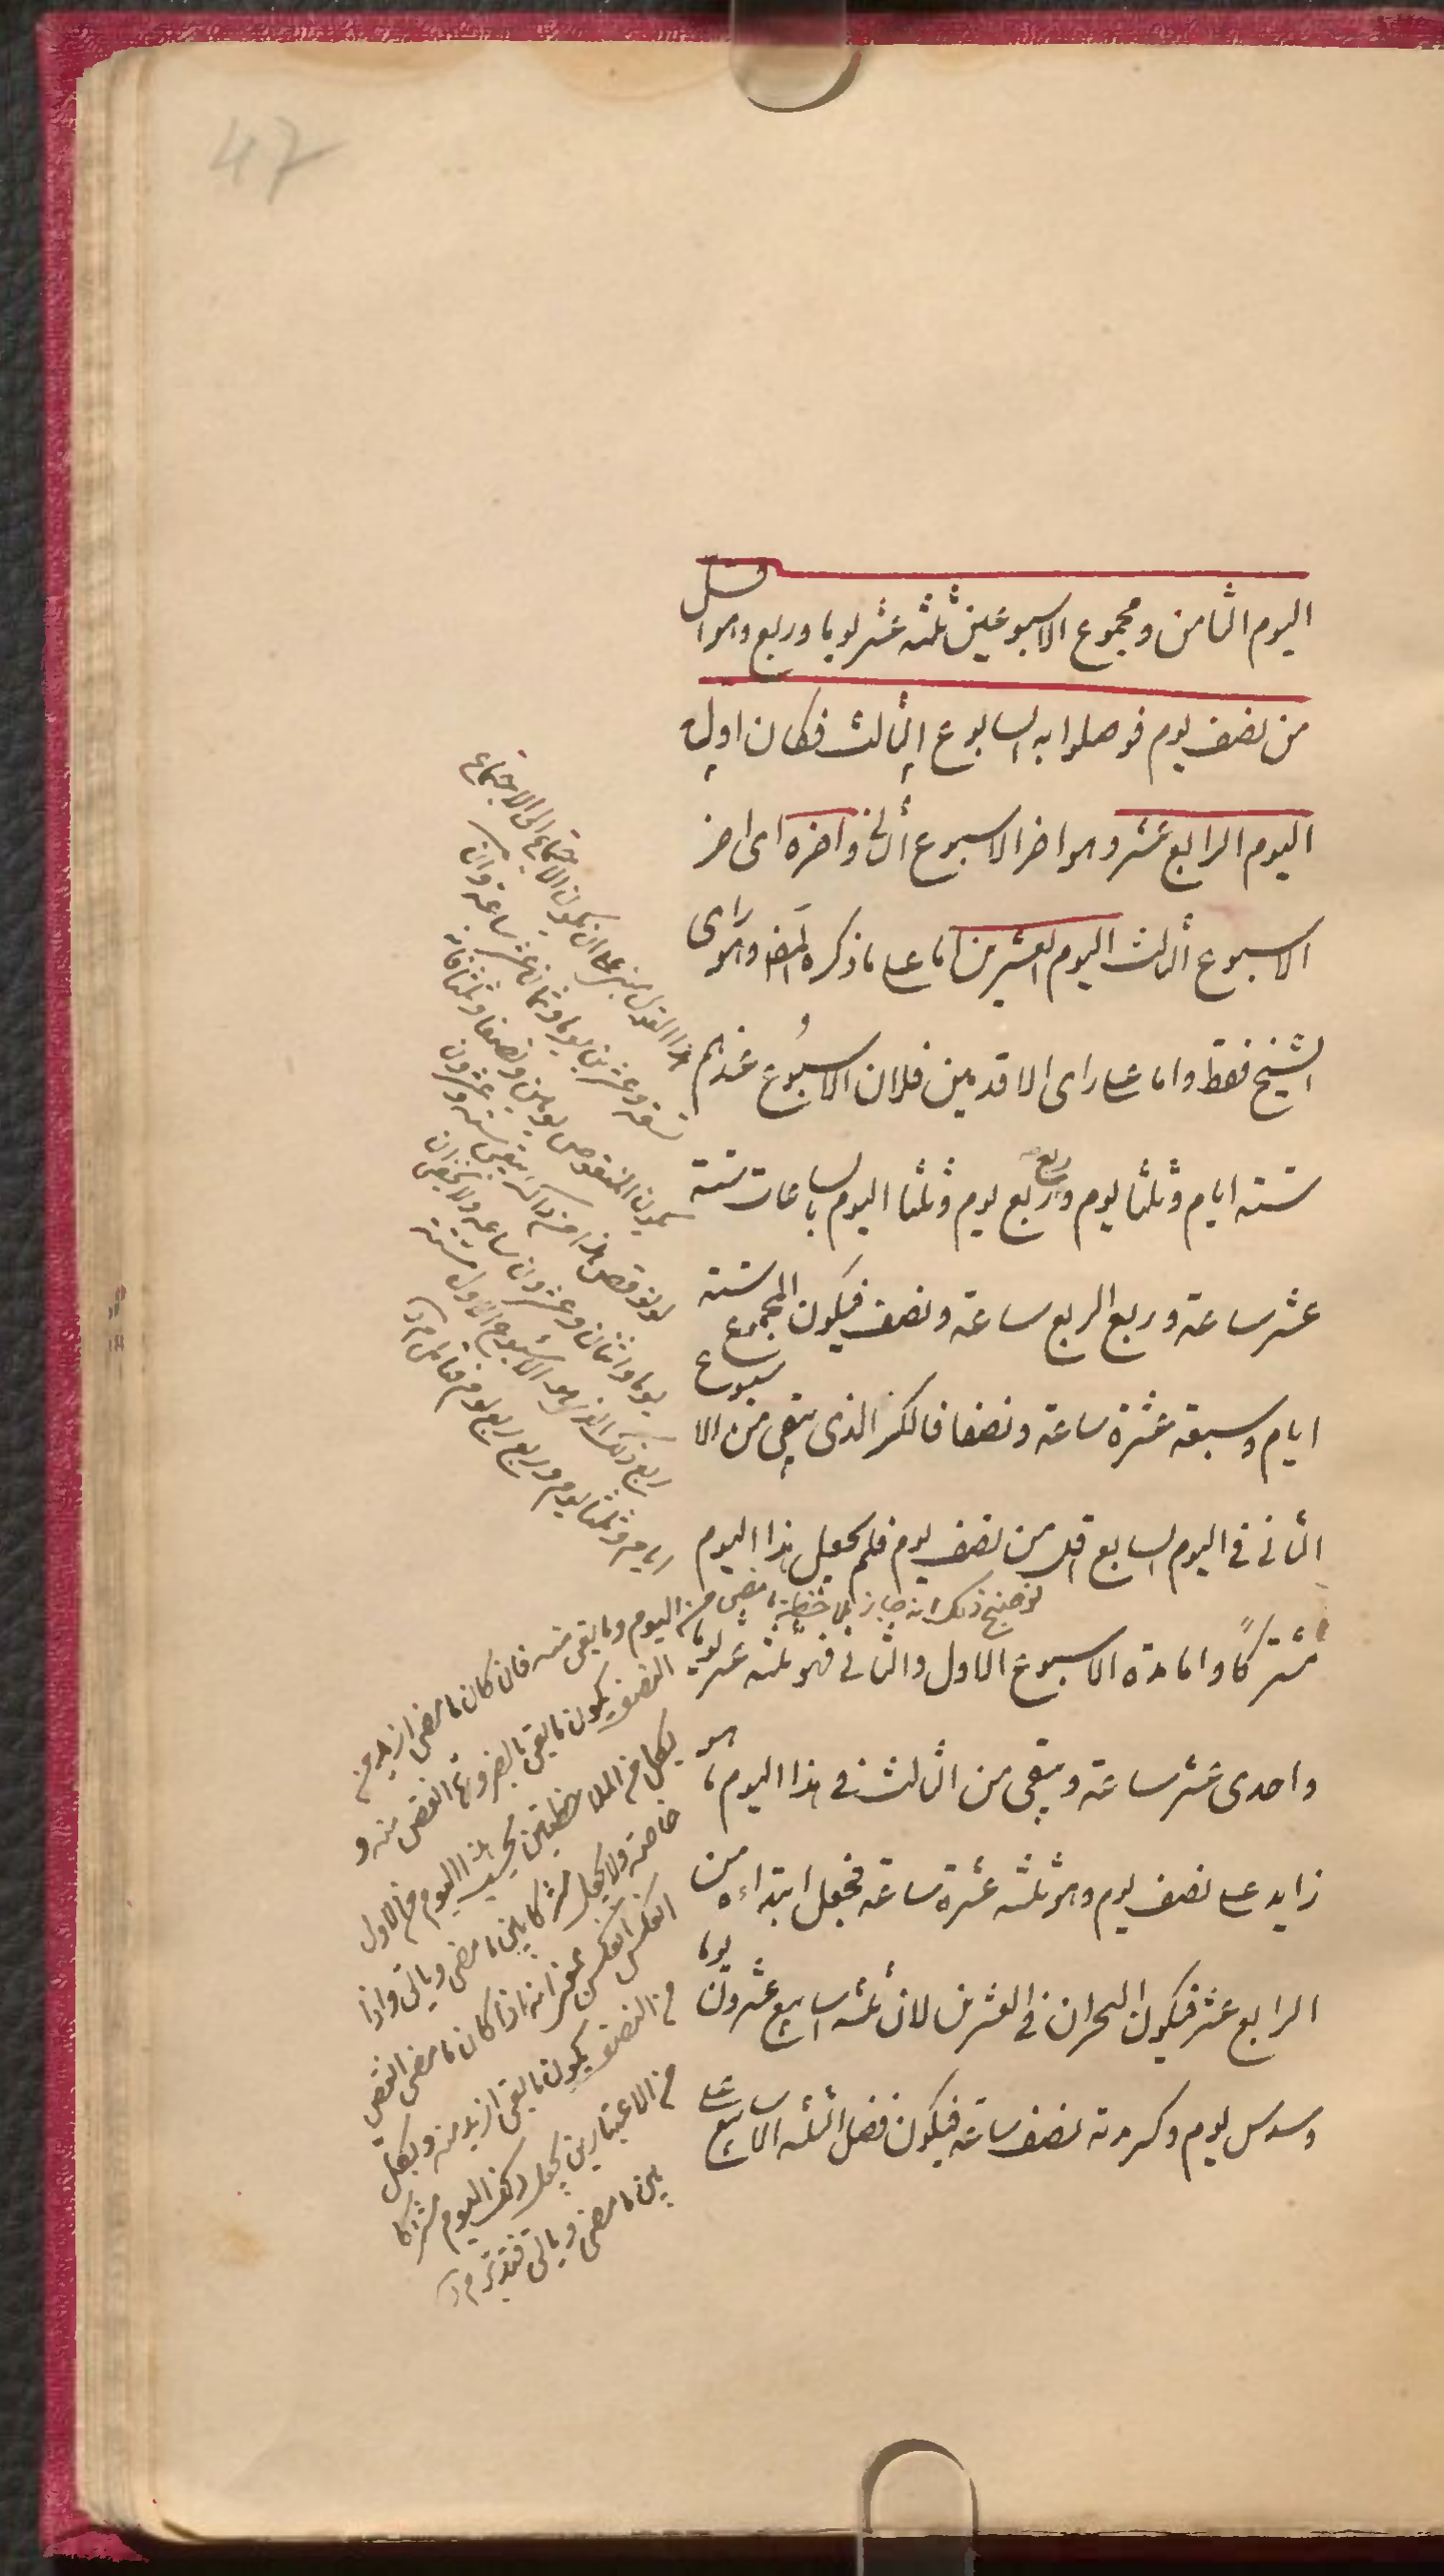 47
اليوم الثامن ومجموع الاسبوعين ثلثه عشر يوما وربع وهو اقل
من نصف يوم فوصلوا به السابوع الثالث فكان اوله
اليوم الرابع عشر وهو اخر الاسبوع الثانى واخره اى اخر
الاسبوع الثالث اليوم العشرين اما على ما ذكره المص وهو راى
الشيخ فقط واما على راى الاقدمين فلان الاسبوع عندهم
ستة ايام وثلثا يوم وربع ربع يوم وثلثا اليوم بالساعات ستة
عشر ساعة وربع الربع ساعة ونصف فيكون المجموع ستة
ايام وسبعة عشرة ساعة ونصفا فالكسر الذى يبقى من الاسبوع
الثانى فى اليوم السابع اقل من نصف يوم فلم يجعل هذا اليوم
مشتركًا واما مدة الاسبوع الاول والثانى فهو ثلثه عشر يوما
واحدى عشر ساعة ويبقى من الثالث فى هذا اليوم ما هو
زايد على نصف يوم وهو ثلثه عشرة ساعة فجعل ابتداءه من
الرابع عشر فيكون البحران فى العشرين لان ثلثه اسابيع عشرون يوما
وسدس يوم وكسرته نصف ساعة فيكون فضل الثلثه الاسابيع على
هذا القول مبنى على ان يكون الاجتماع الى الاجتماع
تسعة وعشرين يوما وثمان عشر ساعة وان
يكون المنقوص يومين ونصفا وثلثا فانه
لو نقص هذا من ذاك يبقى ستة وعشرون
يوما واثنان وعشرون ساعة ولا يخفى ان
ربع ذلك الذى هو الاسبوع الاول ستة
ايام وثلثا يوم وربع ربع يوم فتامل
توضيح ذلك انه جاز ملاحظة ما مضى من اليوم وما بقى منه فان كان ما مضى ازيد من
النصف يكون ما بقى بالضرورة انقص منه و
بكل من الملاحظتين يحسب هذا اليوم من الاول
خاصة ولا يجعل مشتركا بين ما مضى وياتى واذا
انعكس انعكس يعنى انه اذا كان ما مضى انقص
من النصف يكون ما بقى ازيد منه وبكل
من الاعتبارين يجعل ذلك اليوم مشتركا
بين ما مضى وياتى فتدبر